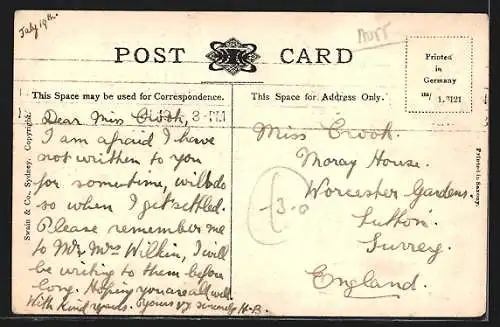 July 19th.
Mutt
POST CARD
Printed
in
Germany
1.3121
This Space may be used for Correspondence.
This Space for Address Only.
Dear Miss Crook,
3-PM
I am afraid I have
not written to you
for sometime, will do
so when I get settled.
Please remember me
to Mr, Mrs Wilkin, I will
be writing to them before
long. Hoping you are all well
With Kind regards. Yours sincerely H.B.
Miss Crook.
Moray House.
Worcester Gardens.
Sutton.
Surrey.
England.
3-0
Swain & Co., Sydney. Copyright.
Printed in Saxony.